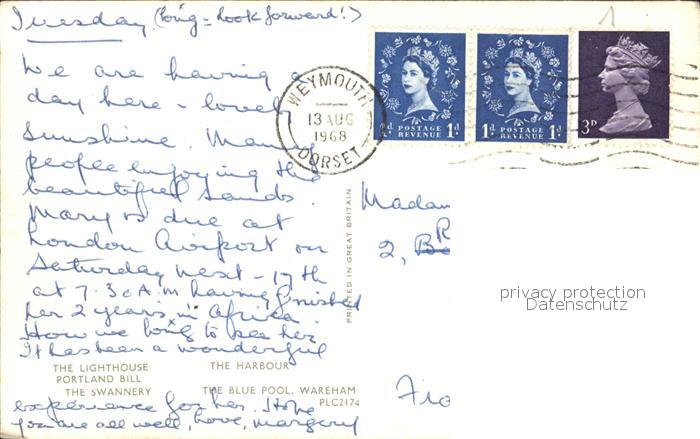 Tuesday (long = look forward!)
We are having a
day here - lovely
sunshine. Many
people enjoying the
beautiful sands.
Mary is due at
London Airport on
Saturday next - 17th
at 7.30 A.M having finished
her 2 years in Africa.
How we long to see her.
It has been a wonderful
experience for her. Hope
you are all well, love, Margery
THE LIGHTHOUSE
PORTLAND BILL
THE SWANNERY
THE HARBOUR
THE BLUE POOL, WAREHAM
PLC2174
PRINTED IN GREAT BRITAIN
WEYMOUTH
13 AUG
1968
DORSET
1d POSTAGE REVENUE 1d
1d POSTAGE REVENUE 1d
3D
Madam
2,
privacy protection
Datenschutz